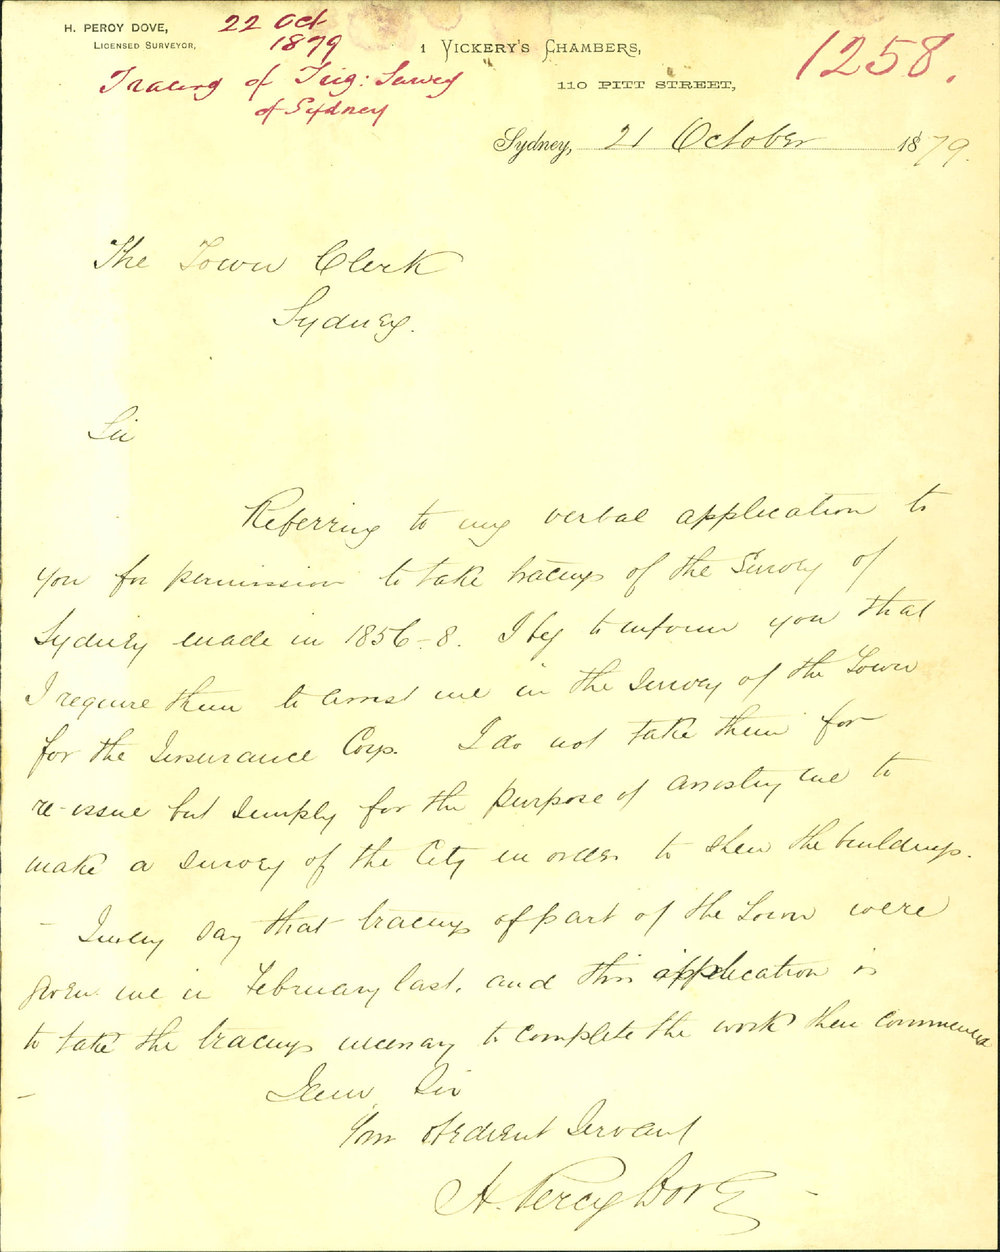 H. PERCY DOVE,
LICENSED SURVEYOR,
22 Oct
1879
Tracing of Trig: Survey
of Sydney
1 VICKERY'S CHAMBERS,
110 PITT STREET,
1258.
Sydney, 21 October 1879.
The Town Clerk
Sydney.
Sir
Referring to my verbal application to
you for permission to take tracings of the Survey of
Sydney made in 1856-8. I beg to inform you that
I require them to assist me in the survey of the Town
for the Insurance Corp. I do not take them for
re-issue but simply for the purpose of assisting me to
make a survey of the City in order to shew the buildings.
- I may say that tracings of part of the Town were
given me in February last, and this application is
to take the tracings necessary to complete the work then commenced
-
I am Sir
Your obedient Servant
H. Percy Dove